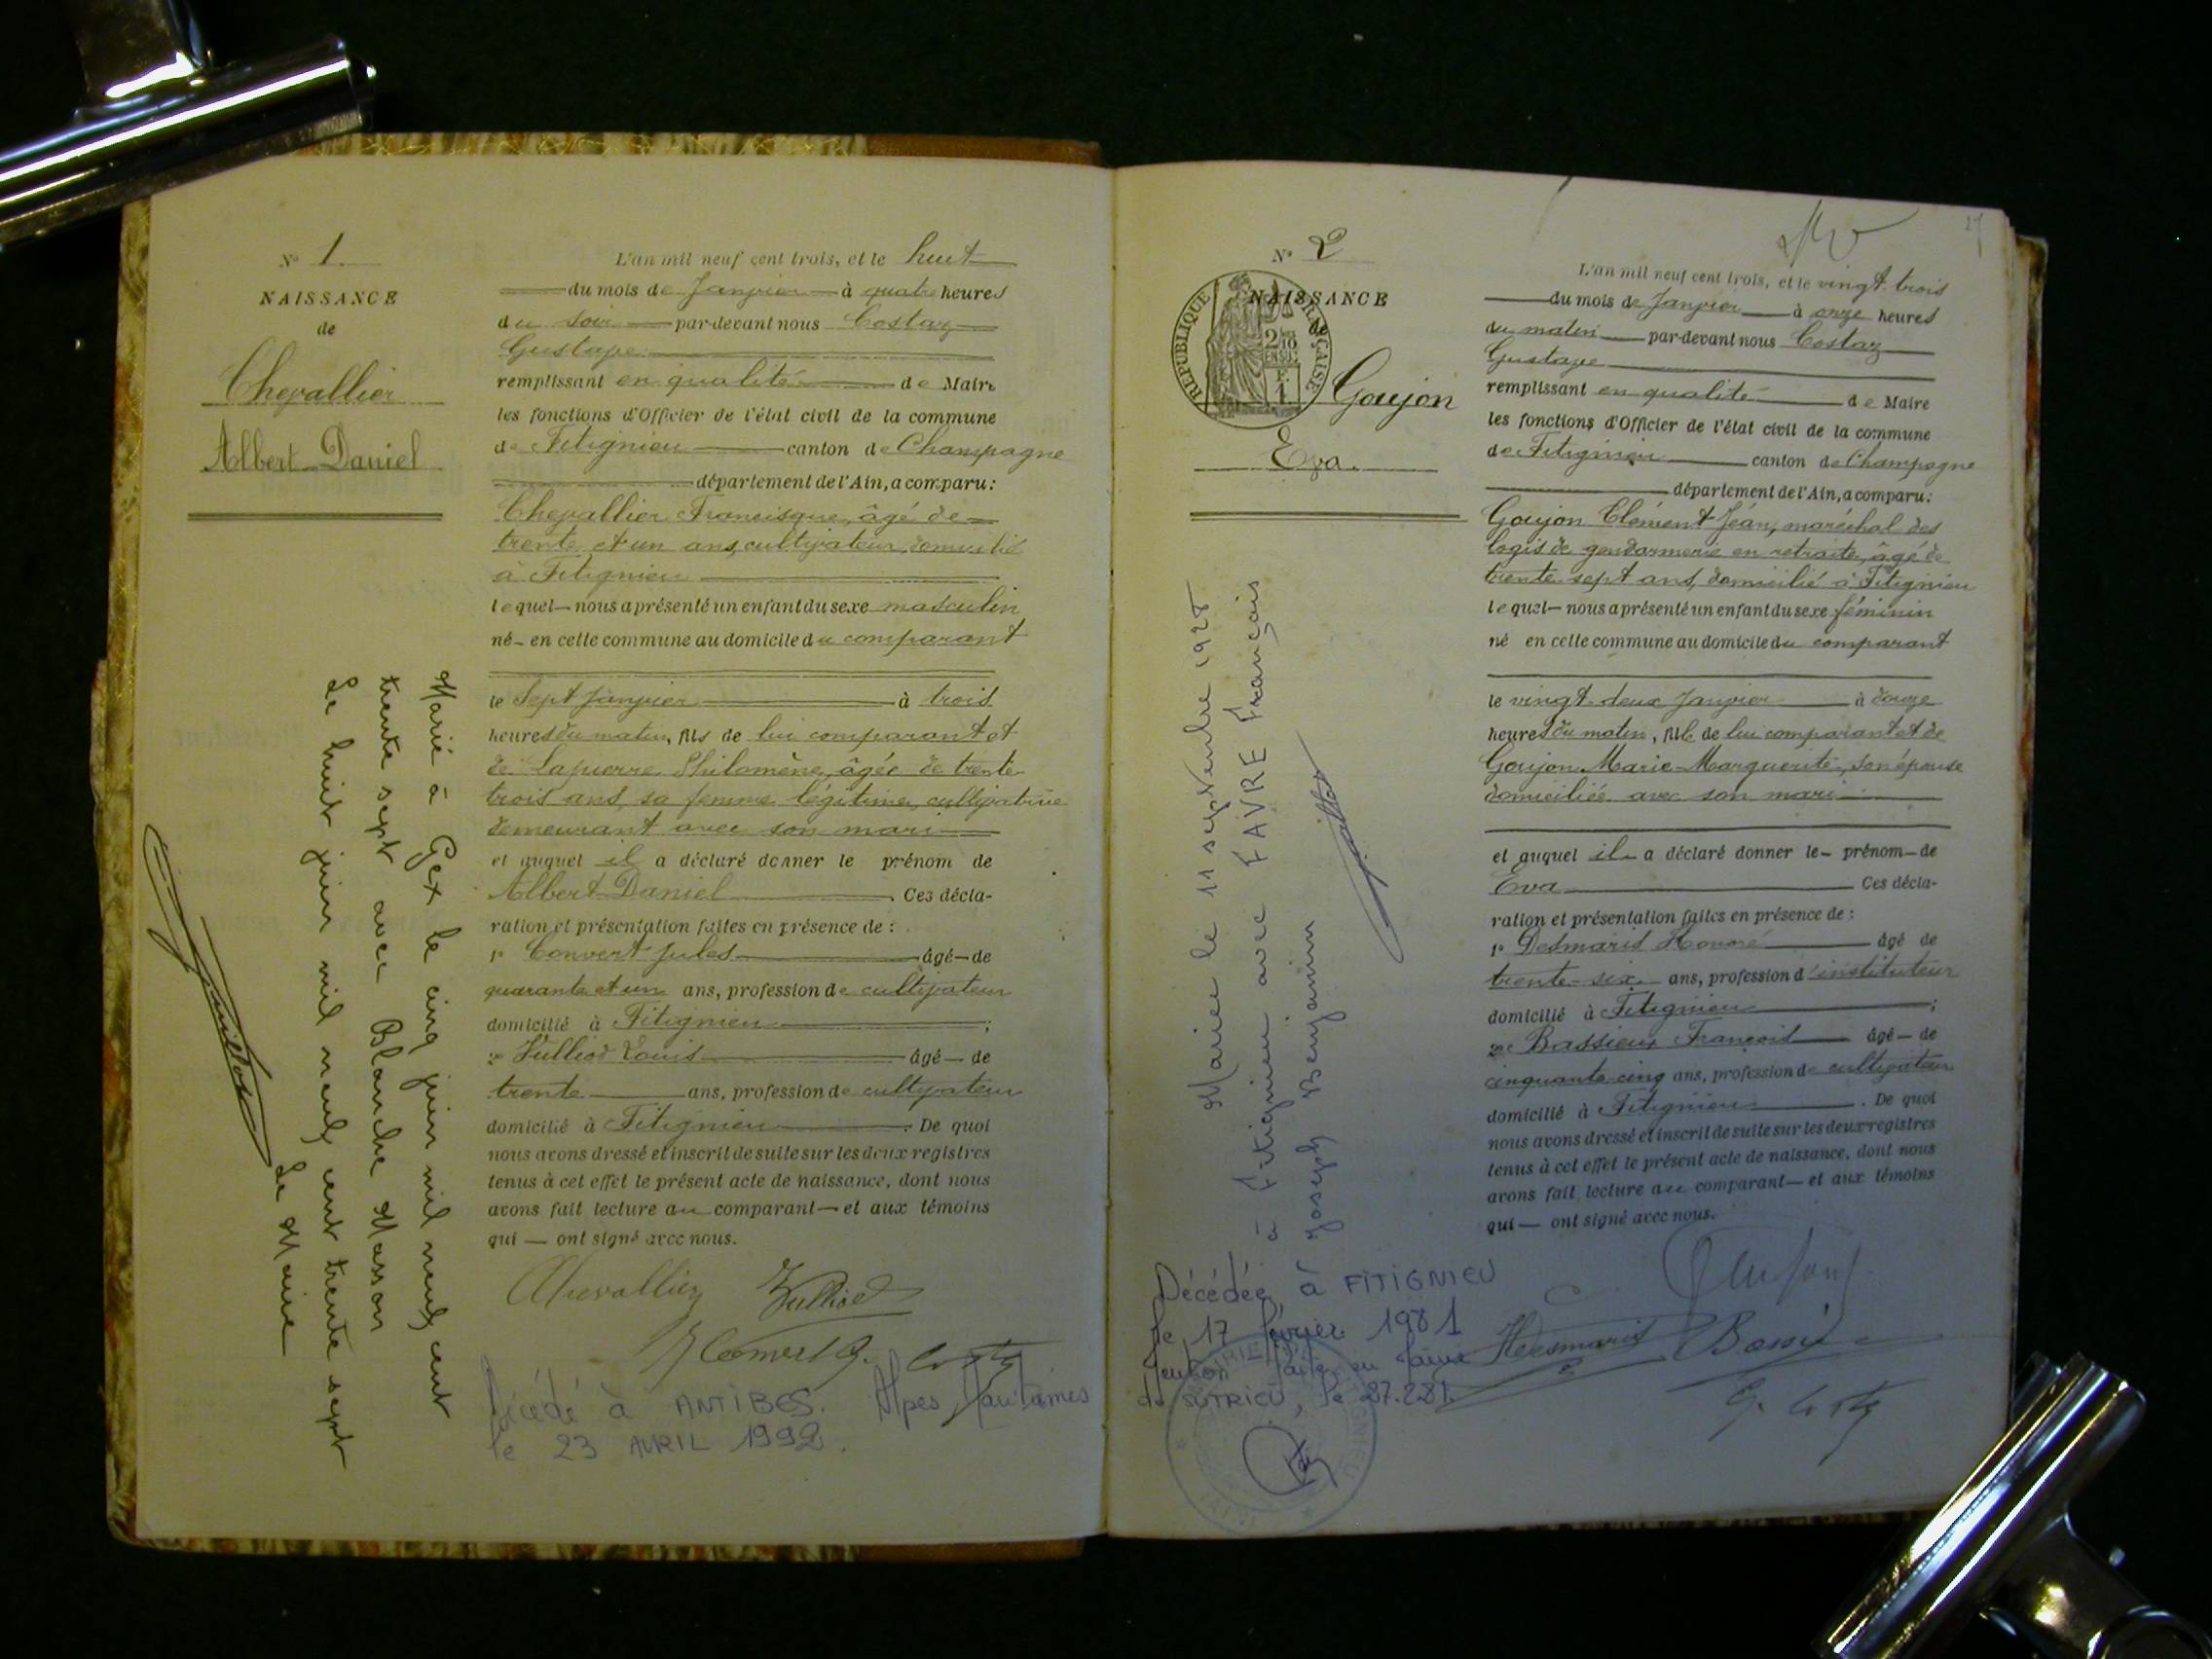 N° 1
NAISSANCE
de
Chevallier
Albert Daniel
L'an mil neuf cent trois, et le huit
du mois de Janvier à quatre heures
du soir par-devant nous Costaz
Gustave
remplissant en qualité de Maire
les fonctions d'Officier de l'état civil de la commune
de Fitignieu canton de Champagne
département de l'Ain, a comparu:
Chevallier Francisque, âgé de
trente et un ans, cultivateur, domicilié
à Fitignieu
lequel nous a présenté un enfant du sexe masculin
né en cette commune au domicile du comparant
le sept Janvier à trois
heures du matin, fils de lui comparant et
de Lapierre Philomène, âgée de trente
trois ans, sa femme légitime, cultivatrice
demeurant avec son mari
et auquel il a déclaré donner le prénom de
Albert Daniel. Ces décla-
ration et présentation faites en présence de :
1° Convert Jules âgé de
quarante et un ans, profession de cultivateur
domicilié à Fitignieu ;
2° Vulliod Louis âgé de
trente ans, profession de cultivateur
domicilié à Fitignieu. De quoi
nous avons dressé et inscrit de suite sur les deux registres
tenus à cet effet le présent acte de naissance, dont nous
avons fait lecture au comparant et aux témoins
qui ont signé avec nous.
Chevallier Vulliod
J Convert G. Costaz
Décédé à ANTIBES. Alpes Maritimes
le 23 AVRIL 1992.
Marié à Gex le cinq juin mil neuf cent
trente sept avec Blanche Masson
Le huit juin mil neuf cent trente sept
Le Maire
N° 2
NAISSANCE
de
RÉPUBLIQUE FRANÇAISE
Goujon
Eva.
L'an mil neuf cent trois, et le vingt trois
du mois de Janvier à onze heures
du matin par-devant nous Costaz
Gustave
remplissant en qualité de Maire
les fonctions d'Officier de l'état civil de la commune
de Fitignieu canton de Champagne
département de l'Ain, a comparu:
Goujon Clément Jean, maréchal des
logis de gendarmerie en retraite, âgé de
trente sept ans, domicilié à Fitignieu
lequel nous a présenté un enfant du sexe féminin
né en cette commune au domicile du comparant
le vingt deux Janvier à onze
heures du matin, fille de lui comparant et de
Goujon Marie-Marguerite, son épouse
domiciliée avec son mari
et auquel il a déclaré donner le prénom de
Eva Ces décla-
ration et présentation faites en présence de :
1° Desmaris Honoré âgé de
trente-six ans, profession d'instituteur
domicilié à Fitignieu ;
2° Bassieux François âgé de
cinquante cinq ans, profession de cultivateur
domicilié à Fitignieu. De quoi
nous avons dressé et inscrit de suite sur les deux registres
tenus à cet effet le présent acte de naissance, dont nous
avons fait lecture au comparant et aux témoins
qui ont signé avec nous.
Hesmaris Bassieu
G. Costaz
Mariée le 11 septembre 1928
à Fitignieu avec FAVRE François
Joseph Benjamin
Décédée à FITIGNIEU
le 17 février 1981
Mention faite en Mairie
de SUTRIEU, le 27.2.81.